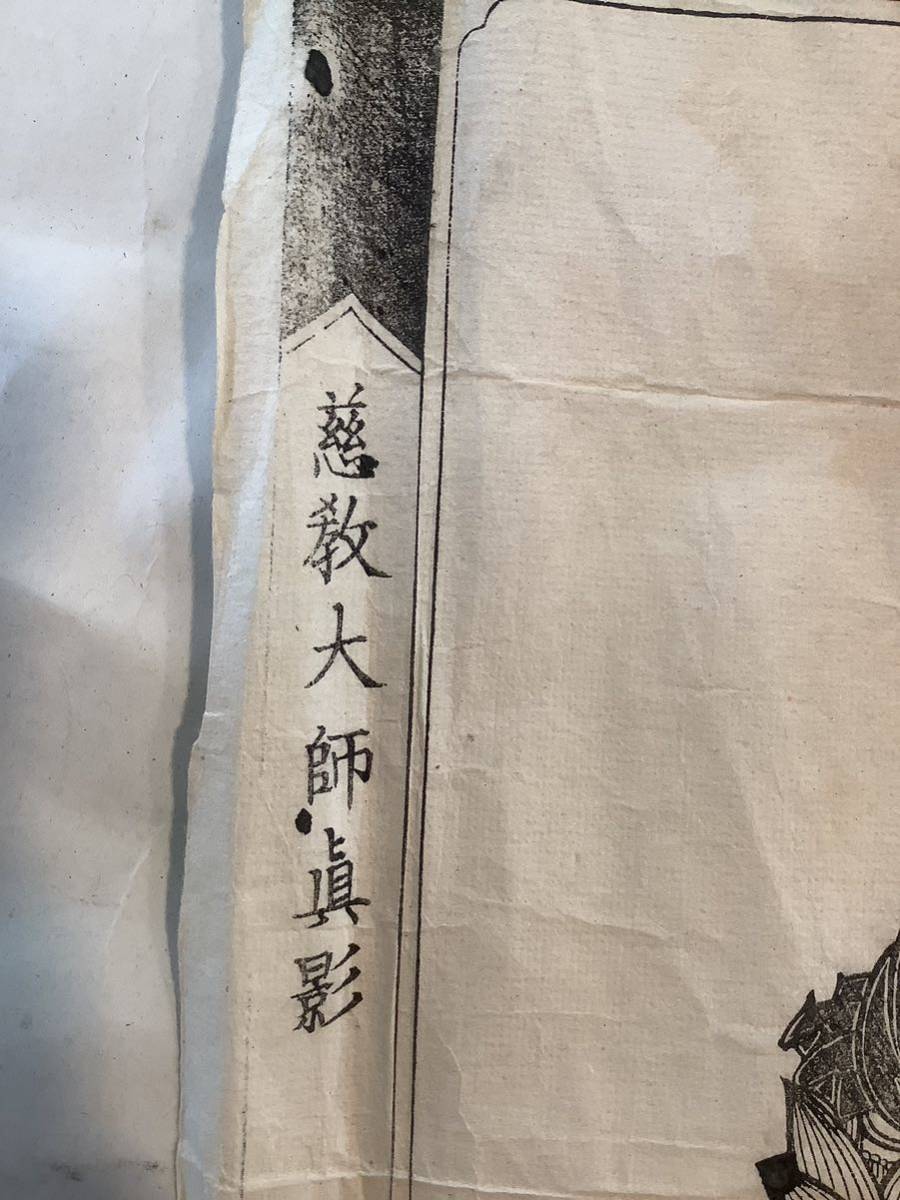 慈教大師眞影